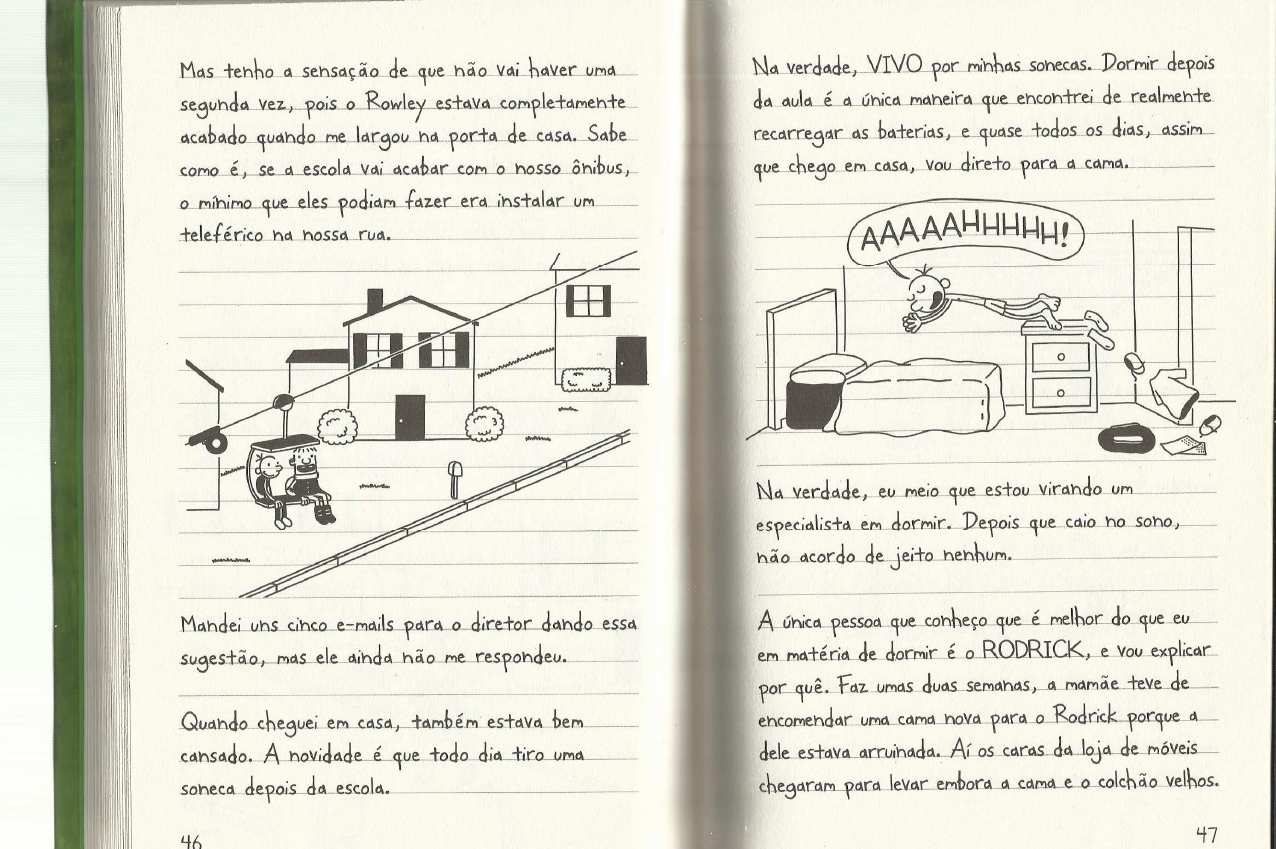 Mas tenho a sensação de que não vai haver uma
segunda vez, pois o Rowley estava completamente
acabado quando me largou na porta de casa. Sabe
como é, se a escola vai acabar com o nosso ônibus,
o mínimo que eles podiam fazer era instalar um
teleférico na nossa rua.
Mandei uns cinco e-mails para o diretor dando essa
sugestão, mas ele ainda não me respondeu.
Quando cheguei em casa, também estava bem
cansado. A novidade é que todo dia tiro uma
soneca depois da escola.
46
Na verdade, VIVO por minhas sonecas. Dormir depois
da aula é a única maneira que encontrei de realmente
recarregar as baterias, e quase todos os dias, assim
que chego em casa, vou direto para a cama.
AAAAAHHHHH!
Na verdade, eu meio que estou virando um
especialista em dormir. Depois que caio no sono,
não acordo de jeito nenhum.
A única pessoa que conheço que é melhor do que eu
em matéria de dormir é o RODRICK, e vou explicar
por quê. Faz umas duas semanas, a mamãe teve de
encomendar uma cama nova para o Rodrick porque a
dele estava arruinada. Aí os caras da loja de móveis
chegaram para levar embora a cama e o colchão velhos.
47